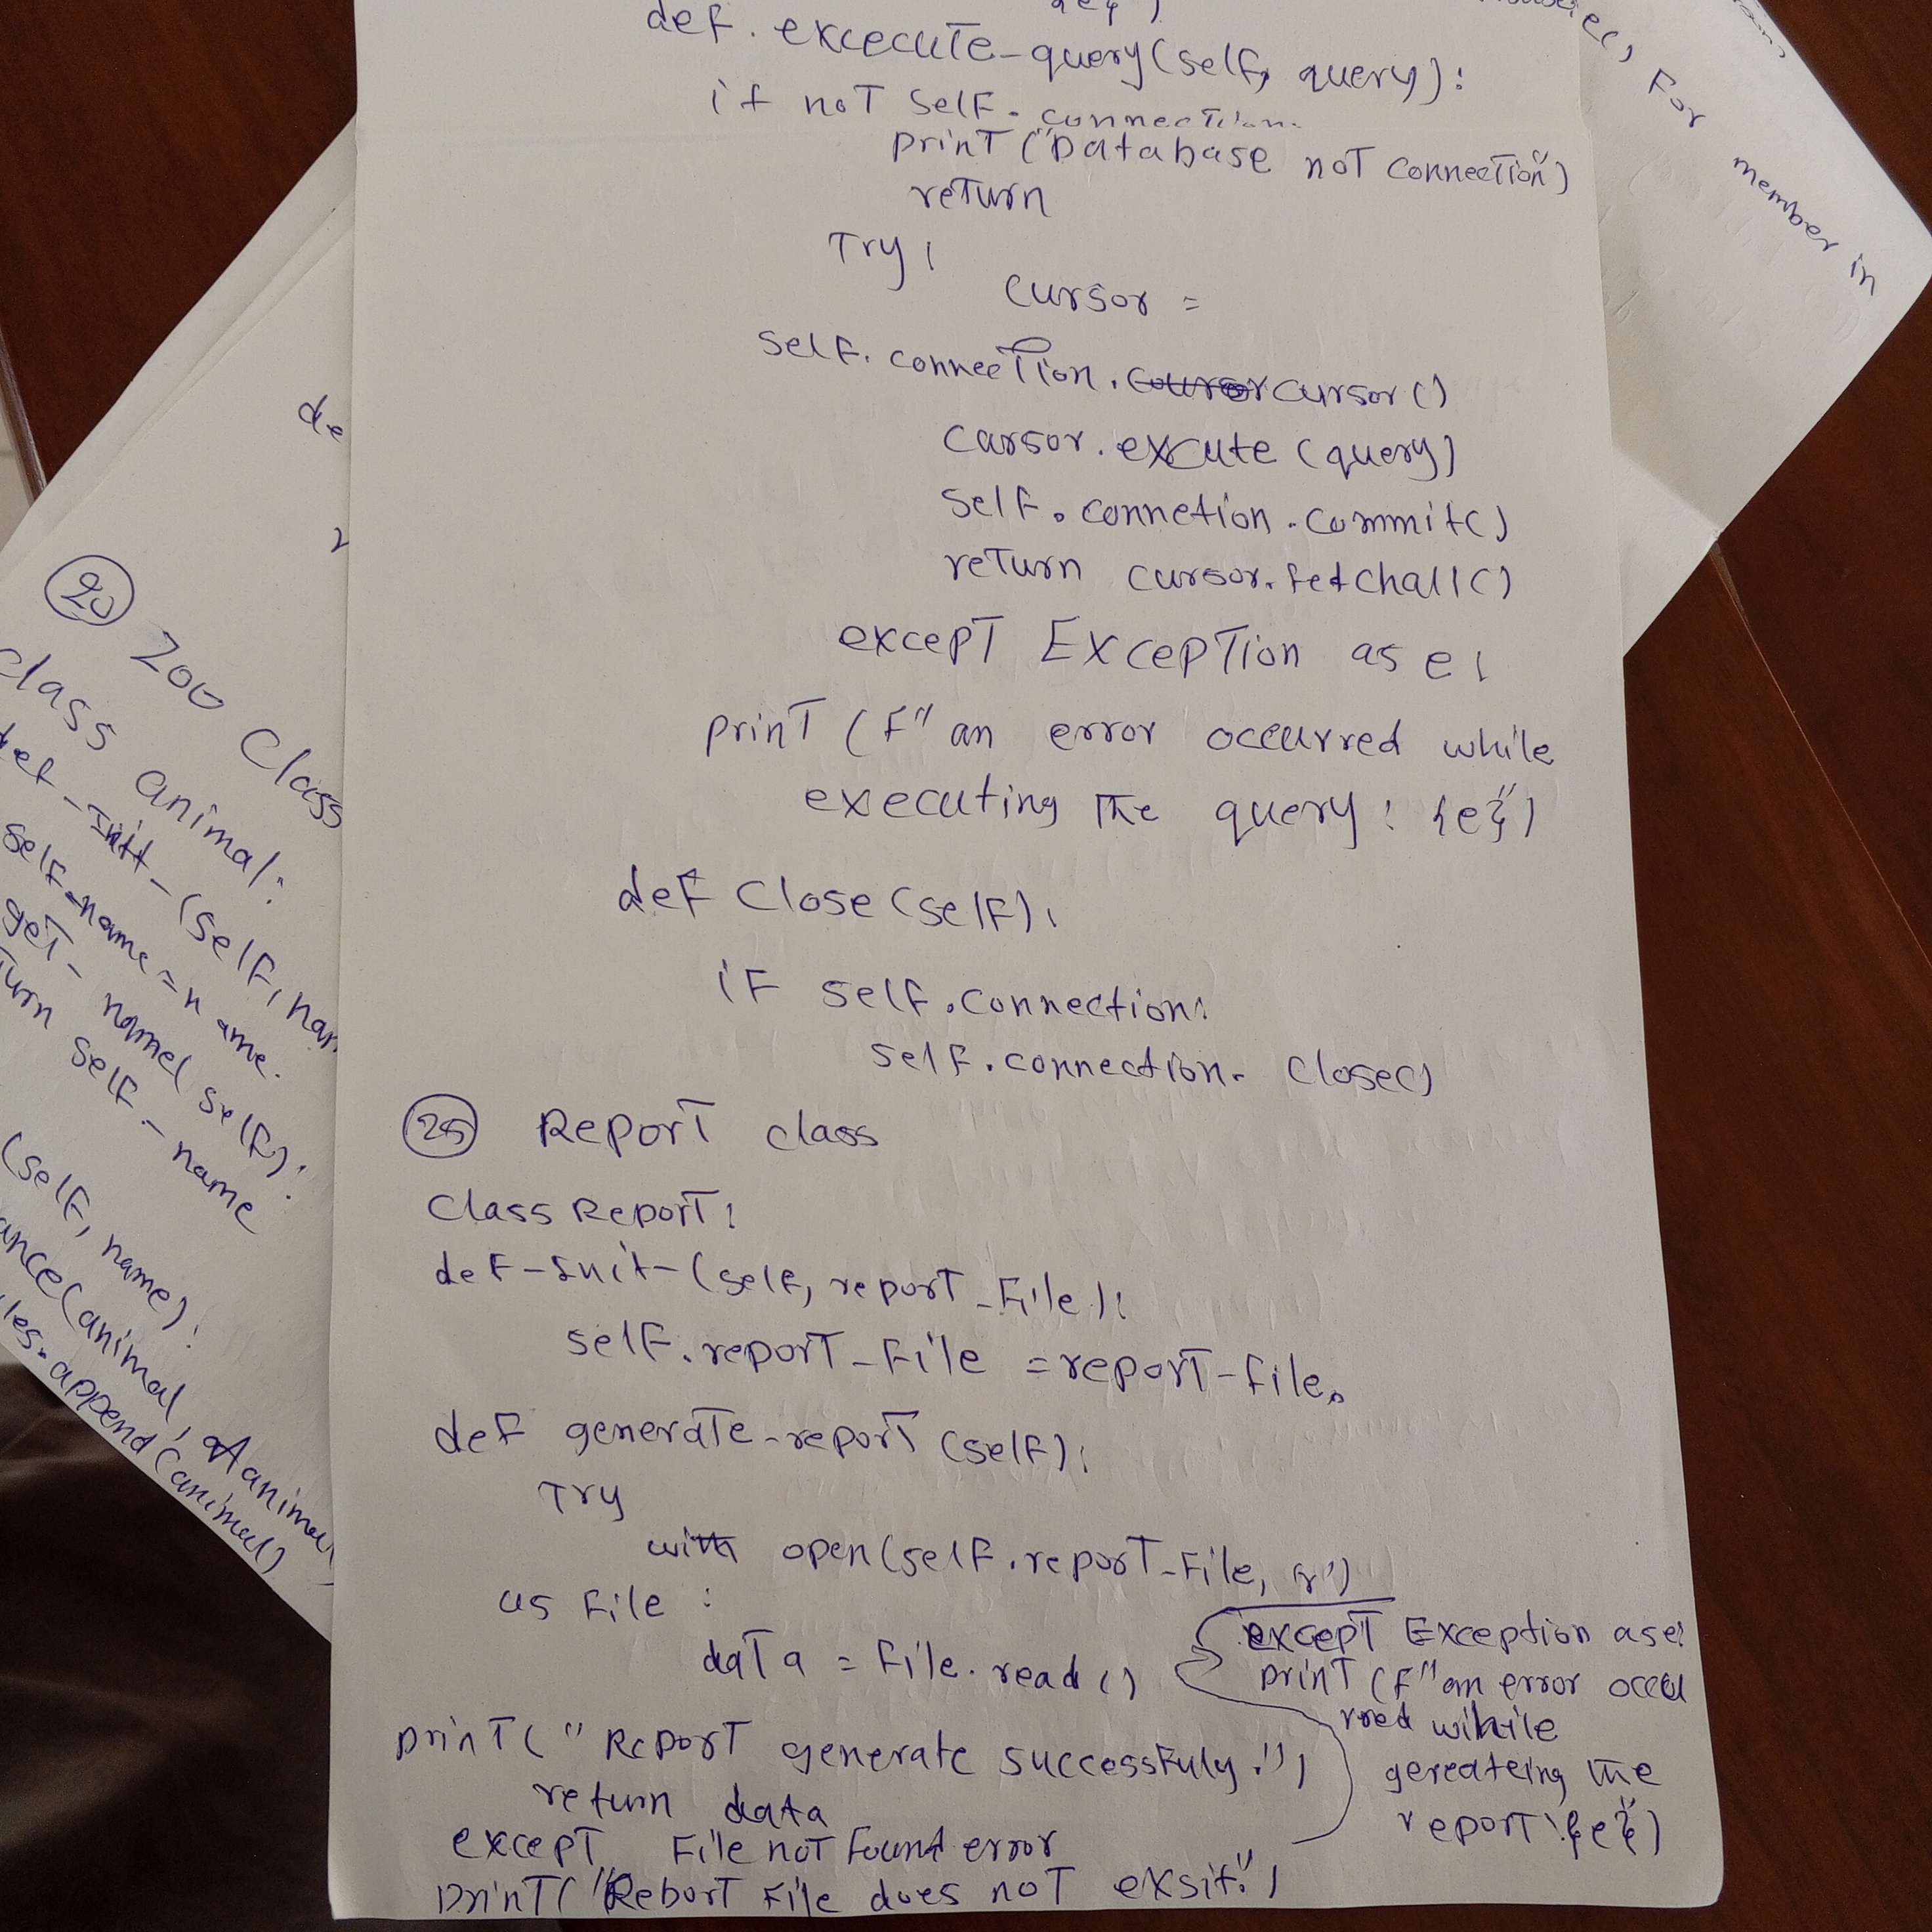 def. excecute-query(self, query):
if not self. connection.
print ("Database not connection")
return
Try:
cursor =
self. connection. cursor()
cursor. excute (query)
self. connetion. commit()
return cursor. fetchall()
except Exception as e:
print (f" an error occurred while
executing the query: {e}")
def close (self):
if self. connection:
self. connection. close()
25 Report class
class Report:
def-Init-(self, report_file):
self. report-file = report-file.
def generate-report (self):
Try
with open(self. report-file, 'r')
as file :
data = file. read ()
print (" Report generate successfuly.")
return data
except File not found error
print ("Rebort file does not exsit.")
except Exception as e:
print (f" an error occu
rred wihile
gereateing the
report: {e}")
20 Zoo Class
class animal:
def-Init-(self, nam
self_name = name.
get- name( self):
turn self - name
(self, name):
ance (animal, Aanimal
les. append (animal)
de
For member in